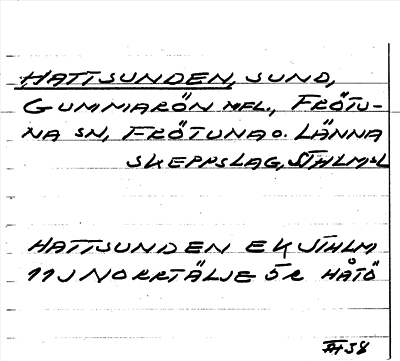 HATTSUNDEN, SUND,
GUMMARÖN MFL., FRÖTU-
NA SN, FRÖTUNA O. LÄNNA
SKEPPSLAG, STHLMSL
HATTSUNDEN EK STHLM
11J NORRTÄLJE 5R HÅTÖ